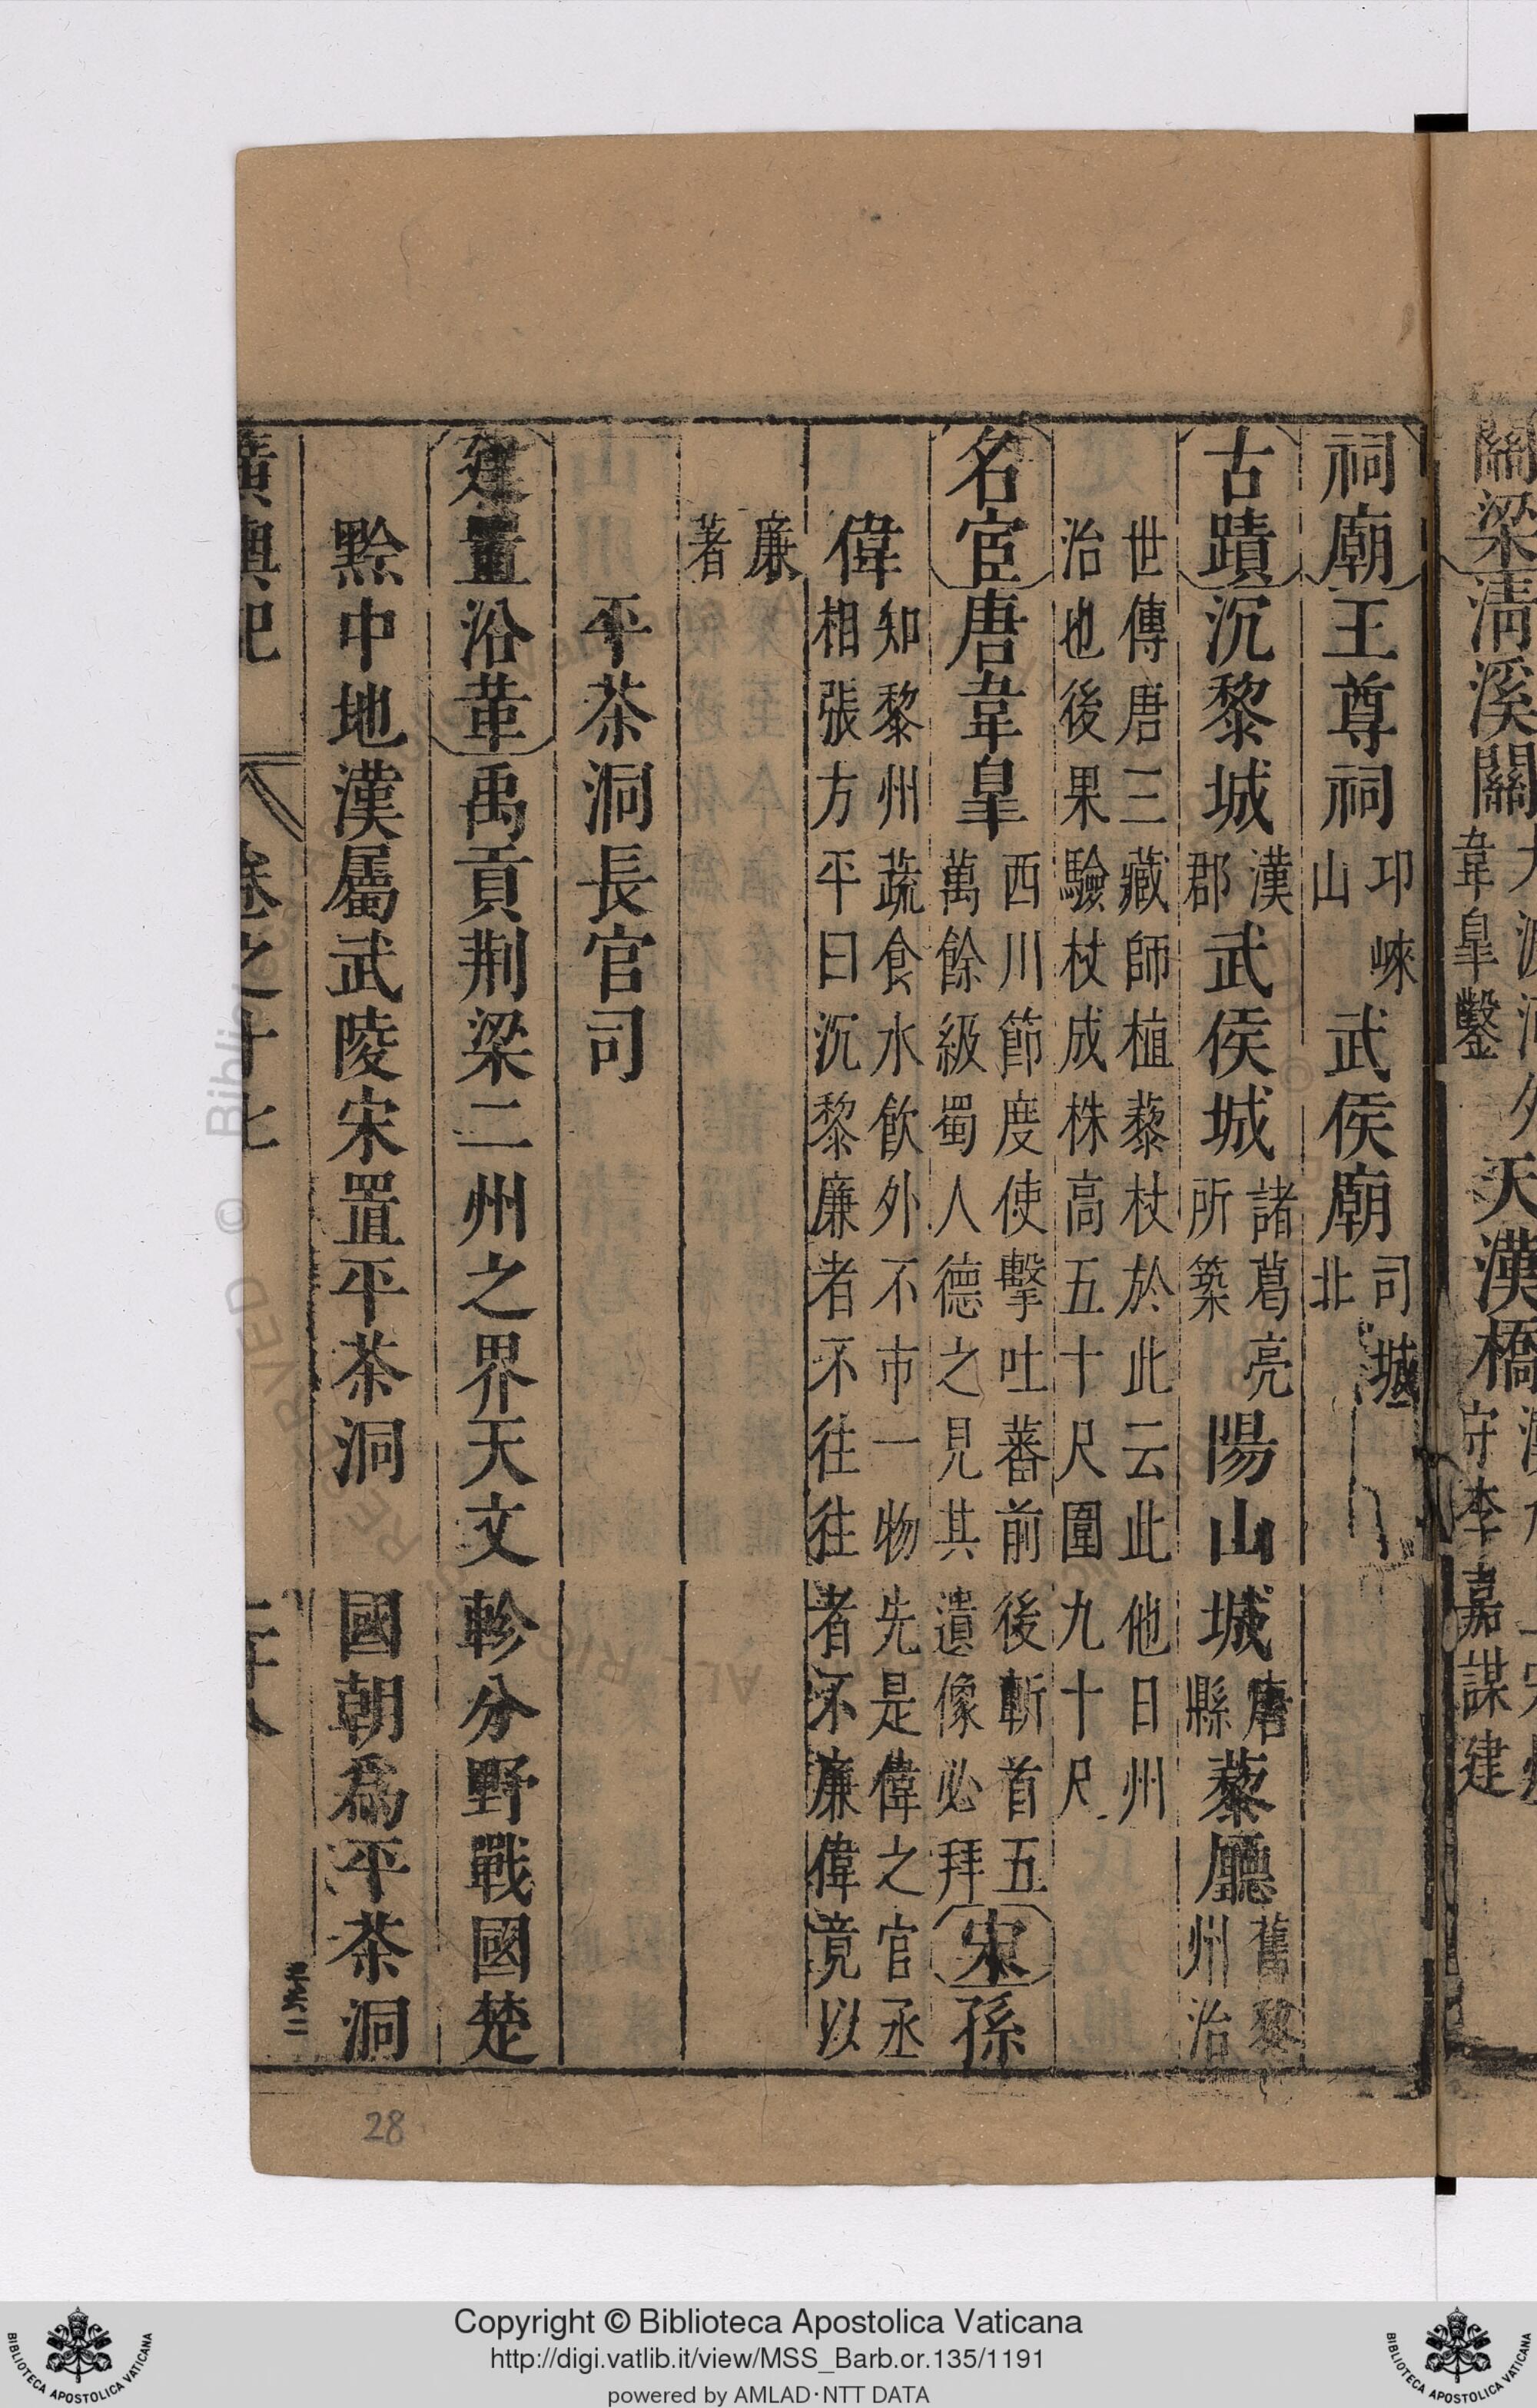 關梁清溪關
韋臯鑿
天漢橋
守李嘉謀建
祠廟王尊祠邛崍山武侯廟司城北
古蹟沉黎城漢郡武侯城諸葛亮所築陽山城唐縣藜廳舊黎州治
世傳唐三藏師植藜杖於此云此他日州
治也後果驗杖成株高五十尺圍九十尺
名宦唐韋臯西川節度使擊吐蕃前後斬首五萬餘級蜀人德之見其遺像必拜宋孫
偉知黎州蔬食水飲外不市一物先是偉之官丞
相張方平曰沉黎廉者不往往者不廉偉竟以
廉
著
平茶洞長官司
建置沿革禹貢荆梁二州之界天文軫分野戰國楚
黔中地漢屬武陵宋置平茶洞國朝爲平茶洞
廣輿記 卷之十七 二十八
28
Copyright © Biblioteca Apostolica Vaticana
http://digi.vatlib.it/view/MSS_Barb.or.135/1191
powered by AMLAD·NTT DATA
BIBLIOTECA APOSTOLICA VATICANA
BIBLIOTECA APOSTOLICA VATICANA